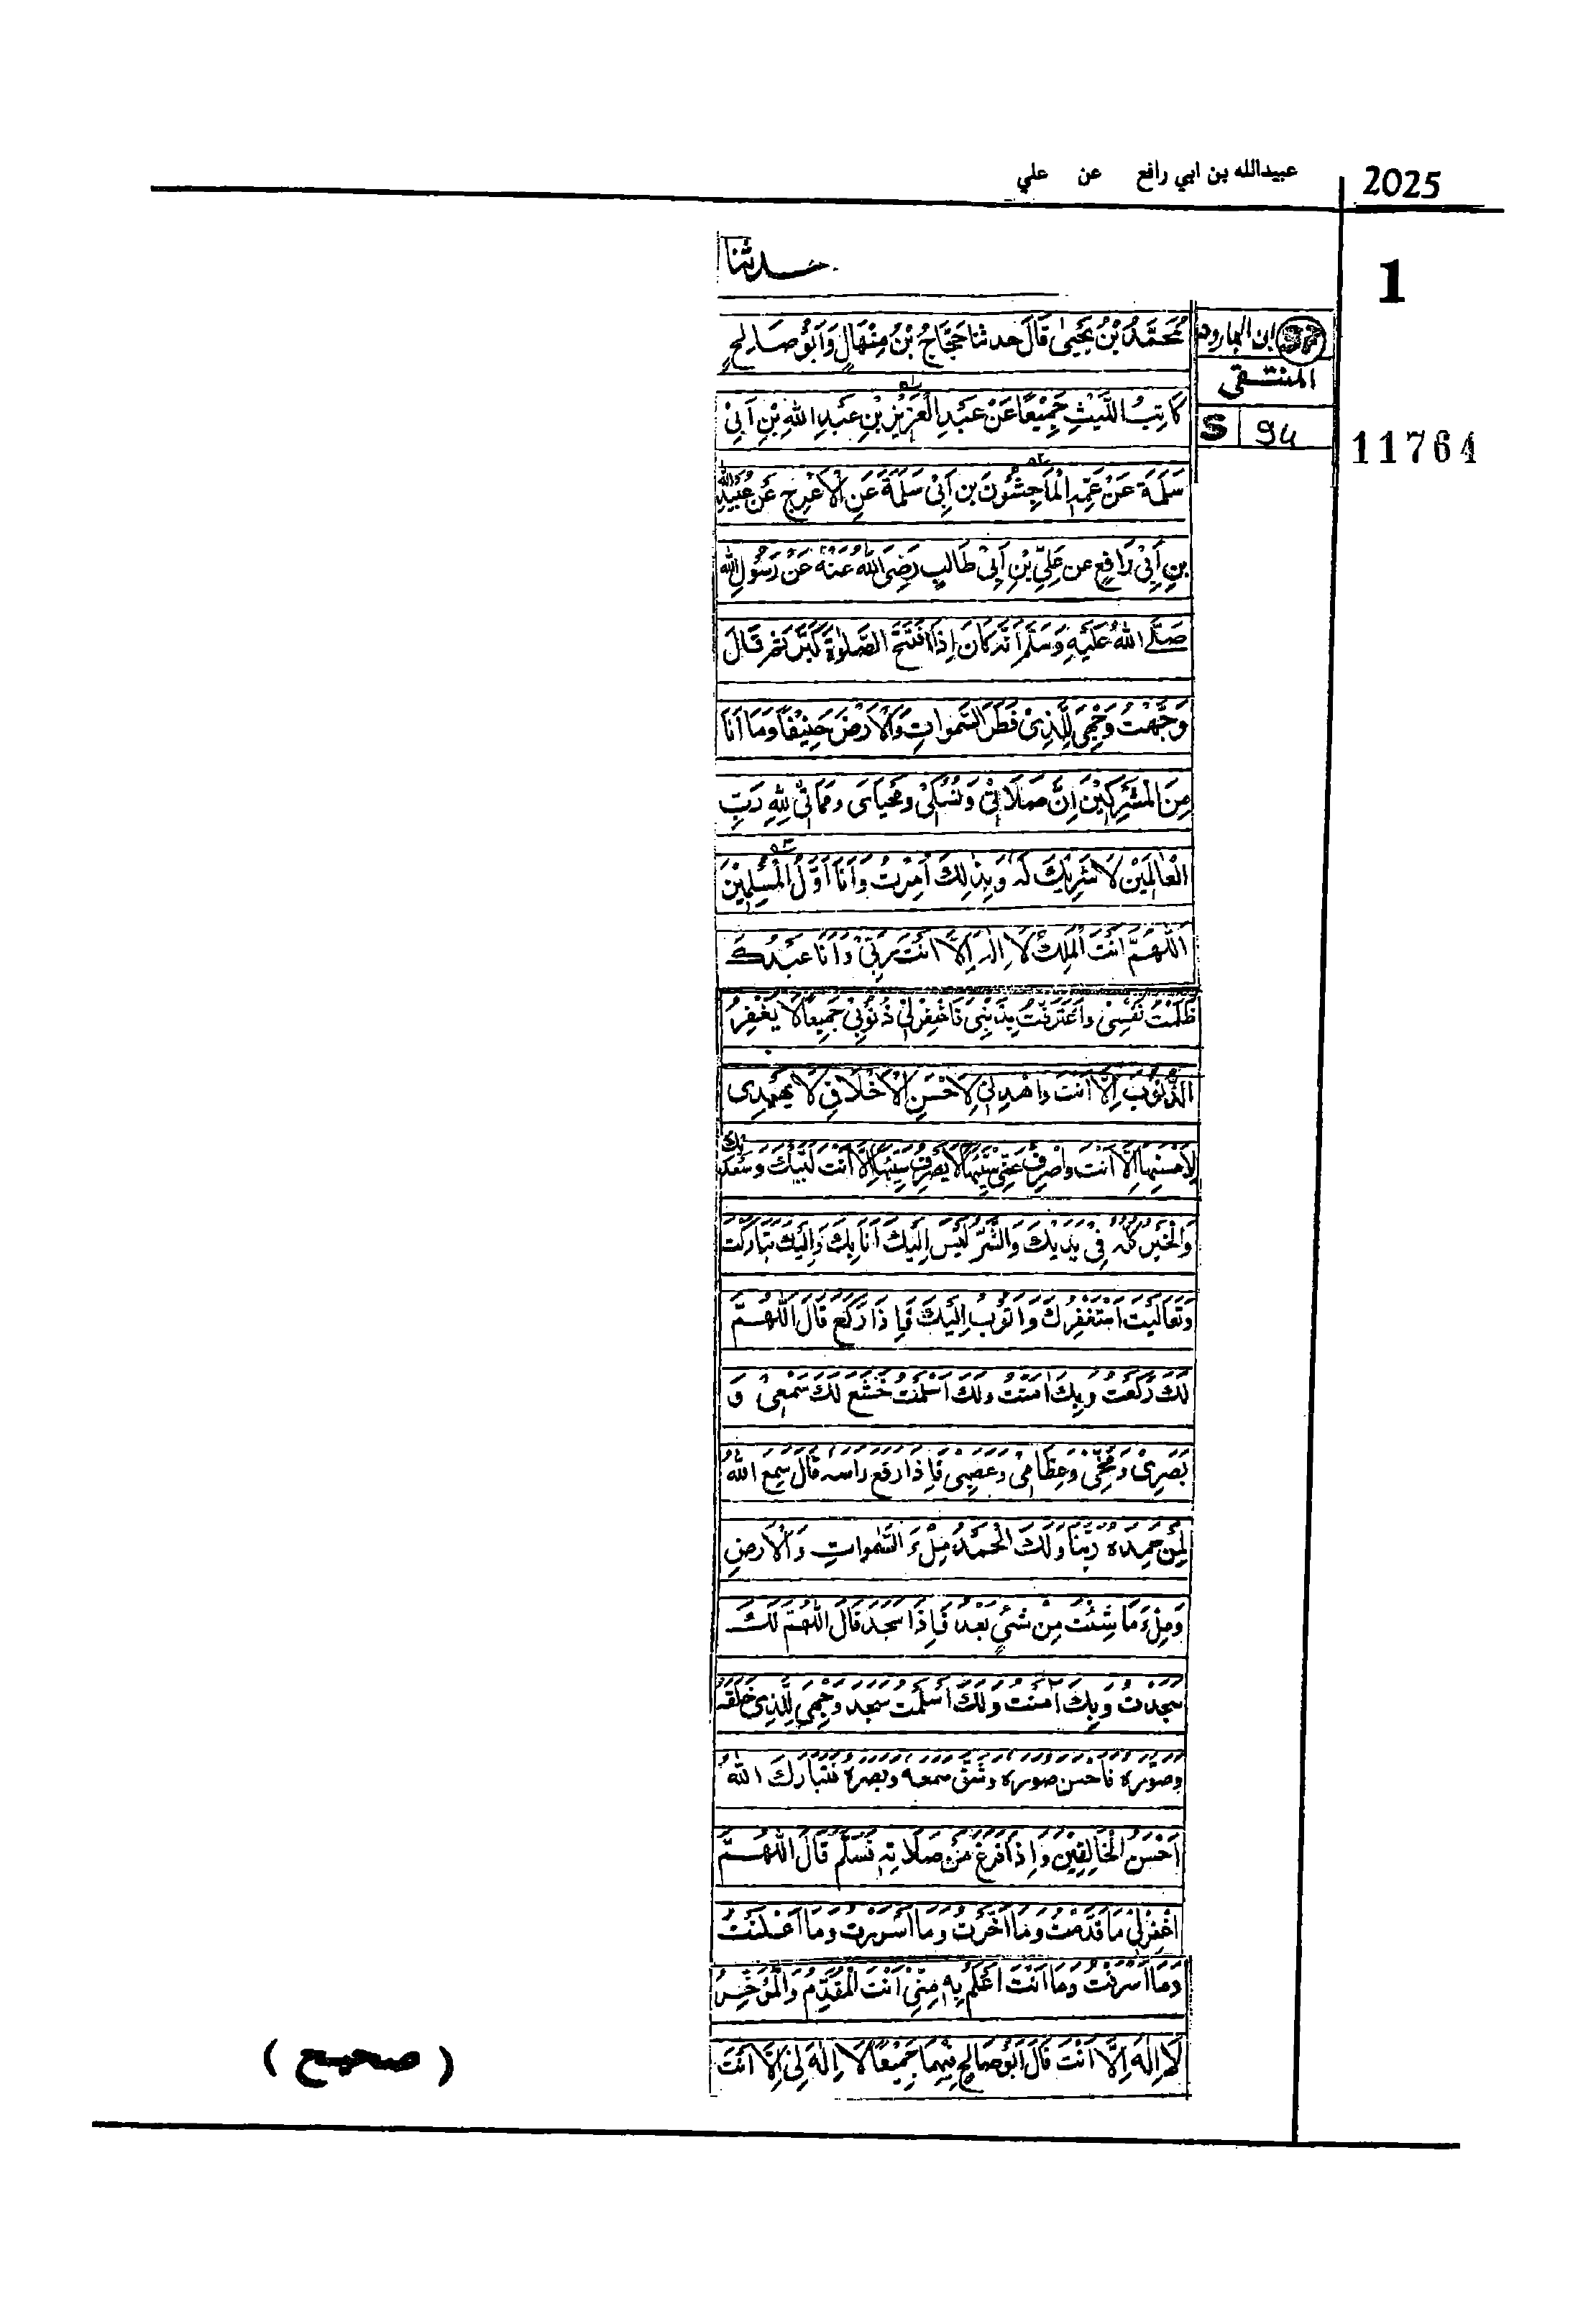 2025
عبيدالله بن ابي رافع عن علي
1
حدثنا
ابن الجارود
المنتقى
S 94
11764
مُحَمَّدُ بْنُ يَحْيَىٰ قَالَ حدثنا حَجَّاجُ بْنُ مِنْهَالٍ وَأَبُو صَالِحٍ
كَاتِبُ اللَّيْثِ جَمِيْعًا عَنْ عَبْدِ الْعَزِيْزِ بْنِ عَبْدِ اللهِ بْنِ أَبِيْ
سَلَمَةَ عَنْ عَمِّهِ الْمَاجِشُوْنَ بن أَبِيْ سَلَمَةَ عَنِ الْأَعْرَجِ عَنْ عُبَيْدِ اللهِ
بْنِ أَبِيْ رَافِعٍ عن عَلِيِّ بْنِ أَبِيْ طَالِبٍ رَضِيَ اللهُ عَنْهُ عَنْ رَسُوْلِ اللهِ
صَلَّى اللهُ عَلَيْهِ وَسَلَّمَ أَنَّهُ كَانَ إِذَا افْتَتَحَ الصَّلٰوةَ كَبَّرَ ثُمَّ قَالَ
وَجَّهْتُ وَجْهِيَ لِلَّذِيْ فَطَرَ السَّمٰوَاتِ وَالْأَرْضَ حَنِيْفًا وَمَا أَنَا
مِنَ الْمُشْرِكِيْنَ إِنَّ صَلَاتِيْ وَنُسُكِيْ وَمَحْيَايَ وَمَمَاتِيْ لِلّٰهِ رَبِّ
الْعَالَمِيْنَ لَا شَرِيْكَ لَهُ وَبِذٰلِكَ أُمِرْتُ وَأَنَا أَوَّلُ الْمُسْلِمِيْنَ
اَللّٰهُمَّ أَنْتَ الْمَلِكُ لَا إِلٰهَ إِلَّا أَنْتَ رَبِّيْ وَأَنَا عَبْدُكَ
ظَلَمْتُ نَفْسِيْ وَاعْتَرَفْتُ بِذَنْبِيْ فَاغْفِرْ لِيْ ذُنُوْبِيْ جَمِيْعًا لَا يَغْفِرُ
الذُّنُوْبَ إِلَّا أَنْتَ وَاهْدِنِيْ لِأَحْسَنِ الْأَخْلَاقِ لَا يَهْدِيْ
لِأَحْسَنِهَا إِلَّا أَنْتَ وَاصْرِفْ عَنِّيْ سَيِّئَهَا لَا يَصْرِفُ سَيِّئَهَا إِلَّا أَنْتَ لَبَّيْكَ وَسَعْدَيْكَ
وَالْخَيْرُ كُلُّهُ فِيْ يَدَيْكَ وَالشَّرُّ لَيْسَ إِلَيْكَ أَنَا بِكَ وَإِلَيْكَ تَبَارَكْتَ
وَتَعَالَيْتَ أَسْتَغْفِرُكَ وَأَتُوْبُ إِلَيْكَ فَإِذَا رَكَعَ قَالَ اللّٰهُمَّ
لَكَ رَكَعْتُ وَبِكَ اٰمَنْتُ وَلَكَ أَسْلَمْتُ خَشَعَ لَكَ سَمْعِيْ وَ
بَصَرِيْ وَمُخِّيْ وَعِظَامِيْ وَعَصَبِيْ فَإِذَا رَفَعَ رَأسَهُ قَالَ سَمِعَ اللهُ
لِمَنْ حَمِدَهُ رَبَّنَا وَلَكَ الْحَمْدُ مِلْءَ السَّمٰوَاتِ وَالْأَرْضِ
وَمِلْءَ مَا شِئْتَ مِنْ شَيْءٍ بَعْدُ فَإِذَا سَجَدَ قَالَ اللّٰهُمَّ لَكَ
سَجَدْتُ وَبِكَ اٰمَنْتُ وَلَكَ أَسْلَمْتُ سَجَدَ وَجْهِيَ لِلَّذِيْ خَلَقَهُ
وَصَوَّرَهُ فَأَحْسَنَ صُوَرَهُ وَشَقَّ سَمْعَهُ وَبَصَرَهُ فَتَبَارَكَ اللهُ
أَحْسَنُ الْخَالِقِيْنَ وَإِذَا فَرَغَ مِنْ صَلَاتِهِ فَسَلَّمَ قَالَ اللّٰهُمَّ
اغْفِرْ لِيْ مَا قَدَّمْتُ وَمَا أَخَّرْتُ وَمَا أَسْرَرْتُ وَمَا أَعْلَنْتُ
وَمَا أَسْرَفْتُ وَمَا أَنْتَ أَعْلَمُ بِهِ مِنِّيْ أَنْتَ الْمُقَدِّمُ وَالْمُؤَخِّرُ
لَا إِلٰهَ إِلَّا أَنْتَ قَالَ أَبُوْ صَالِحٍ فِيْهِمَا جَمِيْعًا لَا إِلٰهَ لِيْ إِلَّا أَنْتَ
( صحيح )